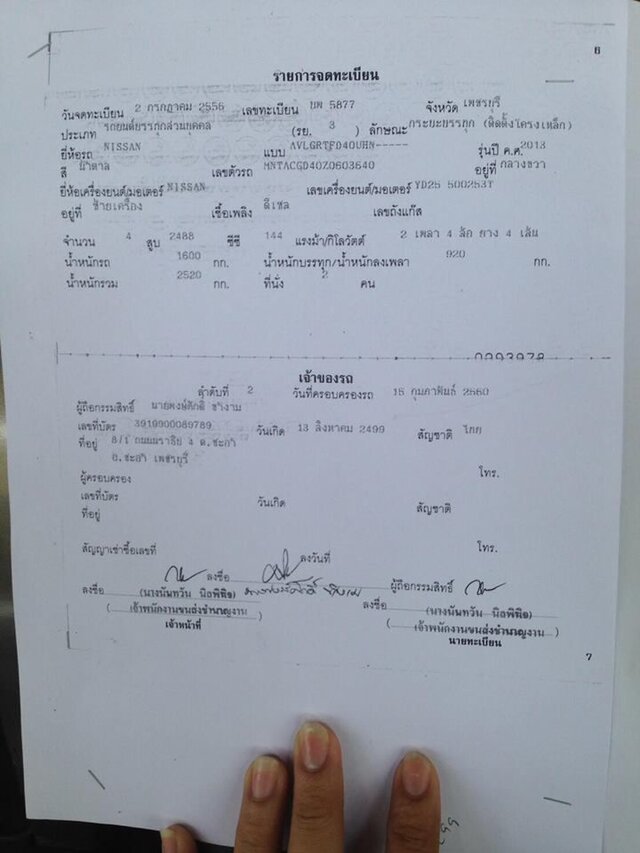 6
รายการจดทะเบียน
วันจดทะเบียน 2 กรกฎาคม 2556 เลขทะเบียน บพ 5877 จังหวัด เพชรบุรี
ประเภท รถยนต์บรรทุกส่วนบุคคล (รย. 3 ) ลักษณะ กระบะบรรทุก (ติดตั้งโครงเหล็ก)
ยี่ห้อรถ NISSAN แบบ AVLGRTFD40UHN----- รุ่นปี ค.ศ. 2013
สี น้ำตาล เลขตัวรถ MNTACGD40Z0603640 อยู่ที่ กลางขวา
ยี่ห้อเครื่องยนต์/มอเตอร์ NISSAN เลขเครื่องยนต์/มอเตอร์ YD25 500253T
อยู่ที่ ซ้ายเครื่อง เชื้อเพลิง ดีเซล เลขถังแก๊ส
จำนวน 4 สูบ 2488 ซีซี 144 แรงม้า/กิโลวัตต์ 2 เพลา 4 ล้อ ยาง 4 เส้น
น้ำหนักรถ 1600 กก. น้ำหนักบรรทุก/น้ำหนักลงเพลา 920 กก.
น้ำหนักรวม 2520 กก. ที่นั่ง 2 คน
เจ้าของรถ
ลำดับที่ 2 วันที่ครอบครองรถ 15 กุมภาพันธ์ 2560
ผู้ถือกรรมสิทธิ์ นายพงษ์ศักดิ์
เลขที่บัตร 3919900089789 วันเกิด 13 สิงหาคม 2499 สัญชาติ ไทย
ที่อยู่ 8/1 ถนนนราธิป 4 ต.ชะอำ
อ.ชะอำ เพชรบุรี
ผู้ครอบครอง โทร.
เลขที่บัตร วันเกิด สัญชาติ
ที่อยู่
สัญญาเช่าซื้อเลขที่ ลงวันที่ โทร.
ลงชื่อ ผู้ถือกรรมสิทธิ์
ลงชื่อ (นางนันทวัน นิลพินิจ) ลงชื่อ (นางนันทวัน นิลพินิจ)
( เจ้าพนักงานขนส่งชำนาญงาน ) ( เจ้าพนักงานขนส่งชำนาญงาน )
เจ้าหน้าที่ นายทะเบียน
7